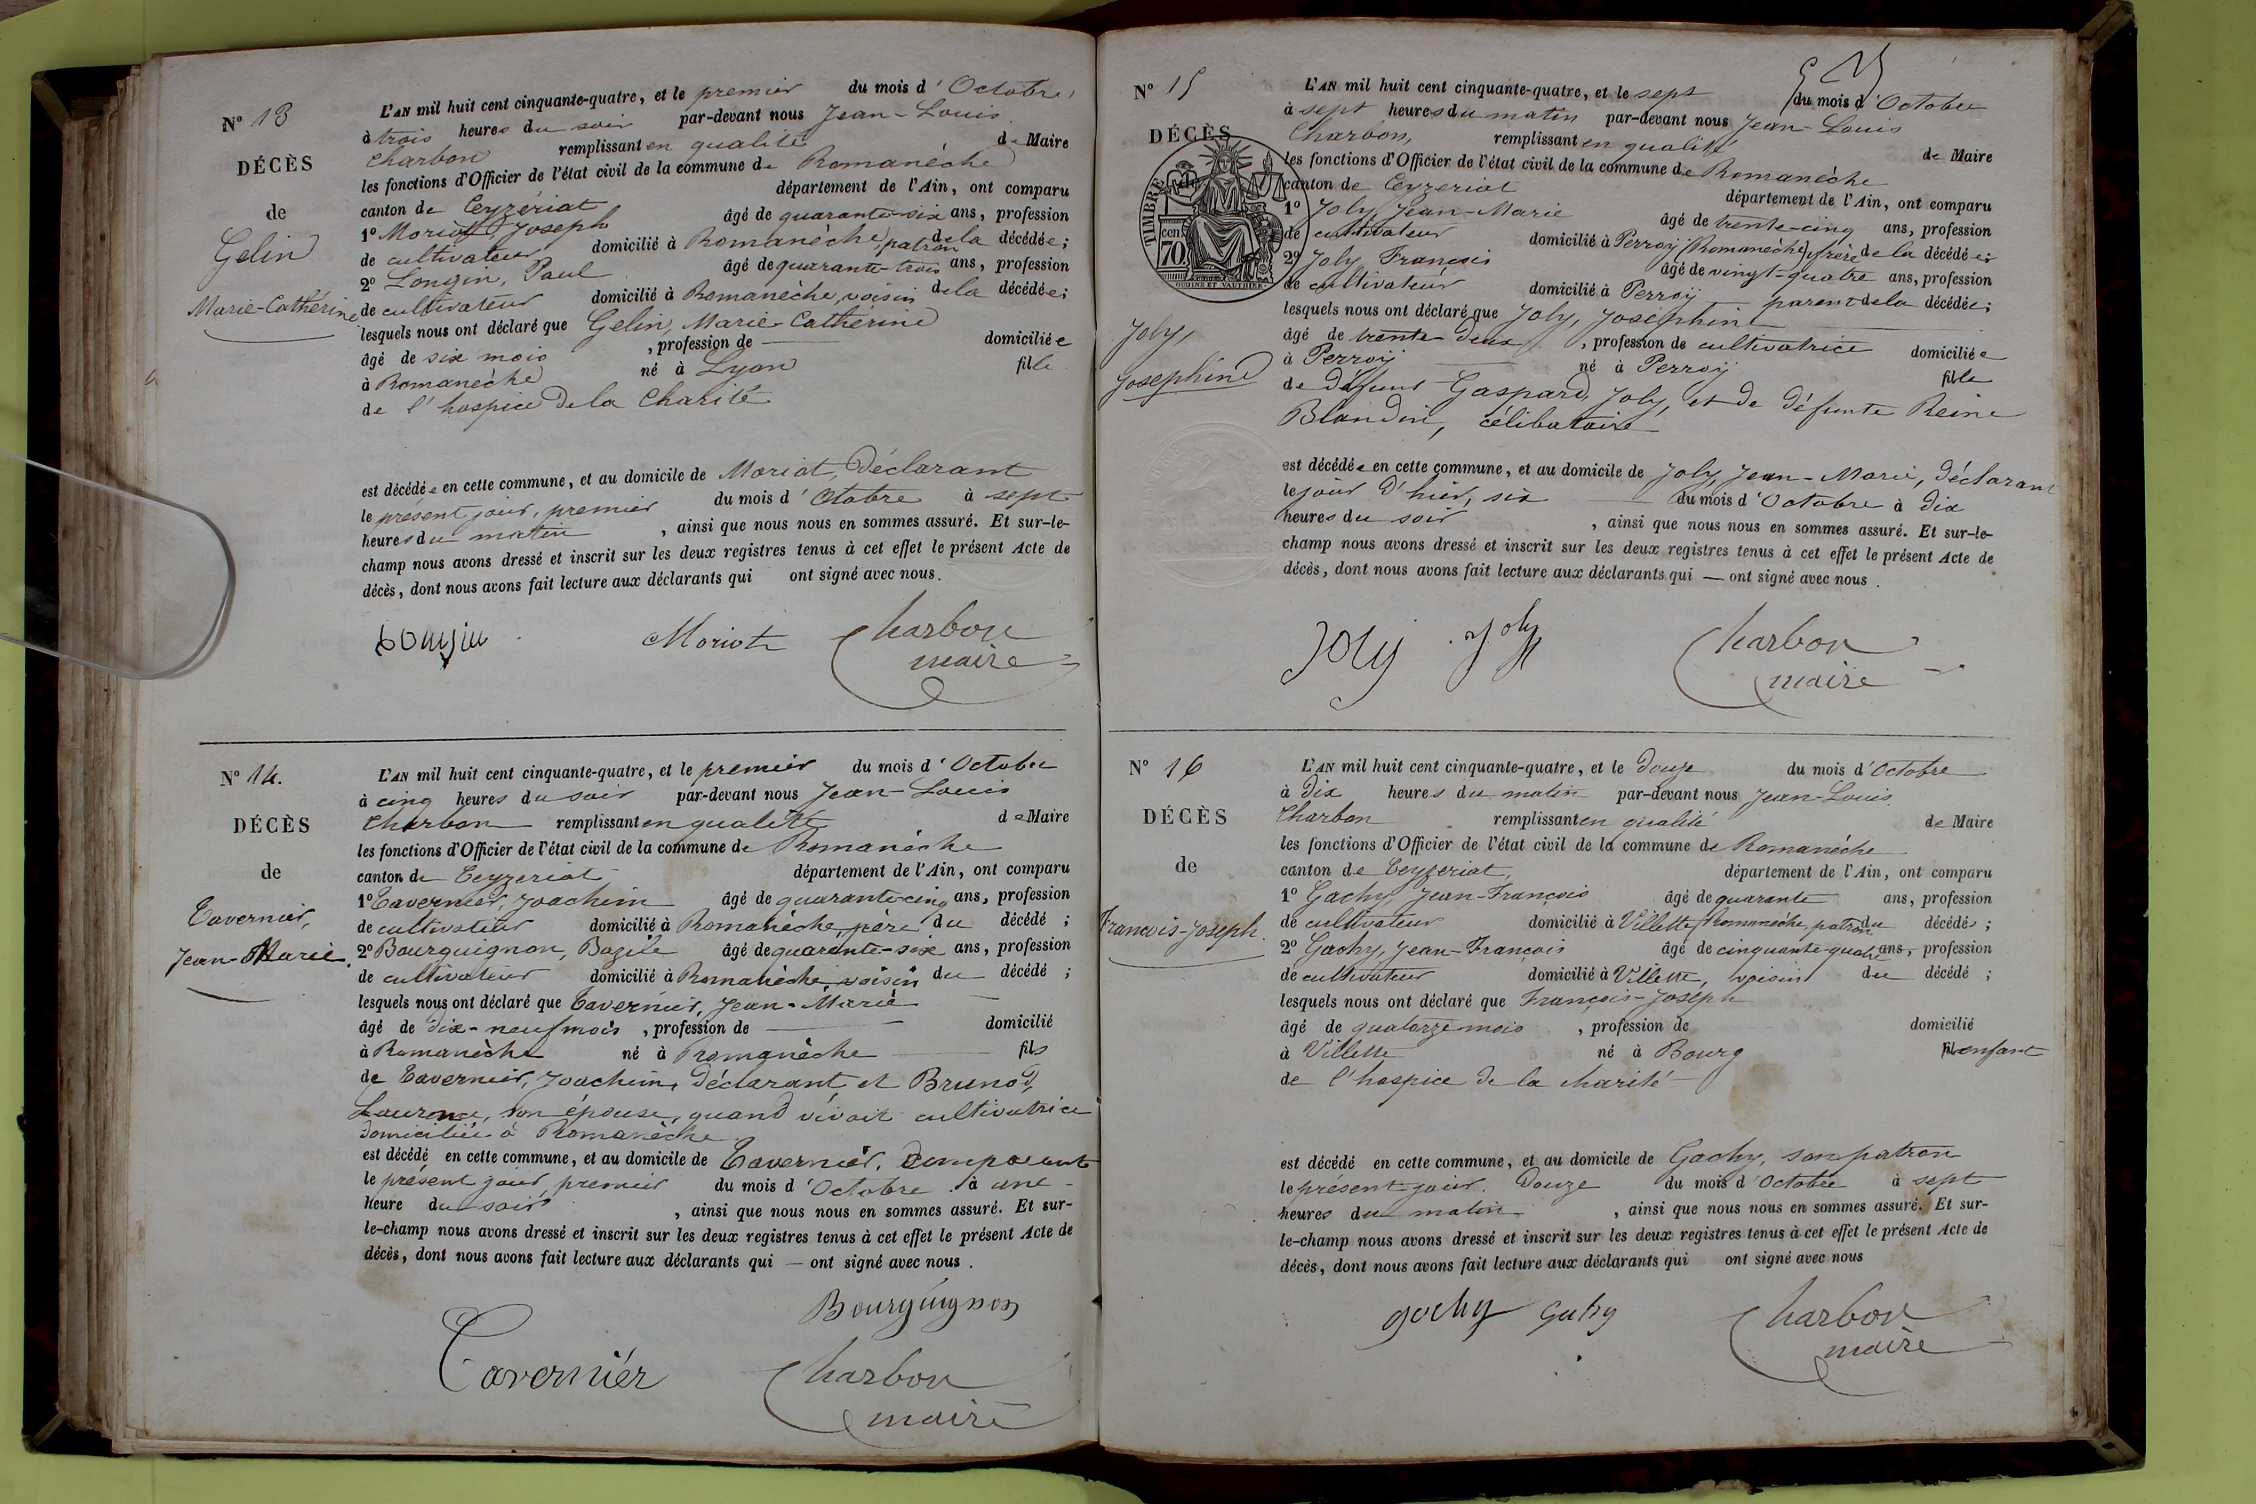 N° 13
DÉCÈS
de
Gelin
Marie-Cathérine
L'AN mil huit cent cinquante-quatre, et le premier du mois d'Octobre,
à trois heures du soir par-devant nous Jean-Louis
Charbon remplissant en qualité de Maire
les fonctions d'Officier de l'état civil de la commune de Romanèche
canton de Ceyzériat département de l'Ain, ont comparu
1° Moriot, Joseph âgé de quarante-six ans, profession
de cultivateur domicilié à Romanèche, patron de la décédée;
2° Longin, Paul âgé de quarante-trois ans, profession
de cultivateur domicilié à Romanèche, voisin de la décédée;
lesquels nous ont déclaré que Gelin, Marie-Catherine
âgé de six mois, profession de — domiciliée
à Romanèche né à Lyon fille
de l'hospice de la Charité
est décédée en cette commune, et au domicile de Moriot, Déclarant
le présent jour, premier du mois d'Octobre à sept
heures du matin, ainsi que nous nous en sommes assuré. Et sur-le-
champ nous avons dressé et inscrit sur les deux registres tenus à cet effet le présent Acte de
décès, dont nous avons fait lecture aux déclarants qui ont signé avec nous.
Longin Moriot Charbon
maire
N° 14.
DÉCÈS
de
Tavernier,
Jean-Marie.
L'AN mil huit cent cinquante-quatre, et le premier du mois d'Octobre
à cinq heures du soir par-devant nous Jean-Louis
Charbon remplissant en qualité de Maire
les fonctions d'Officier de l'état civil de la commune de Romanèche
canton de Ceyzeriat département de l'Ain, ont comparu
1° Tavernier, Joachim âgé de quarante-cinq ans, profession
de cultivateur domicilié à Romanèche, père du décédé;
2° Bourguignon, Bazile âgé de quarante-six ans, profession
de cultivateur domicilié à Romanèche voisin du décédé;
lesquels nous ont déclaré que Tavernier, Jean-Marie —
âgé de dix-neuf mois, profession de — domicilié
à Romanèche né à Romanèche — fils
de Tavernier, Joachim, Déclarant et Brunod,
Laurence, son épouse, quand vivait cultivatrice
domiciliée à Romanèche
est décédé en cette commune, et au domicile de Tavernier, comparant
le présent jour premier du mois d'Octobre à une
heure du soir, ainsi que nous nous en sommes assuré. Et sur-
le-champ nous avons dressé et inscrit sur les deux registres tenus à cet effet le présent Acte de
décès, dont nous avons fait lecture aux déclarants qui — ont signé avec nous.
Bourguignon
Tavernier Charbon
maire
N° 15
DÉCÈS
de
TIMBRE
70
OUDINE ET VAUTHIER
Joly,
Josephine
L'AN mil huit cent cinquante-quatre, et le sept du mois d'Octobre
à sept heures du matin par-devant nous Jean-Louis
Charbon, remplissant en qualité de Maire
les fonctions d'Officier de l'état civil de la commune de Romanèche
canton de Ceyzeriat département de l'Ain, ont comparu
1° Joly, Jean-Marie âgé de trente-cinq ans, profession
de cultivateur domicilié à Perroÿ (Romanèche) frère de la décédée;
2° Joly, François âgé de vingt-quatre ans, profession
de cultivateur domicilié à Perroÿ parent de la décédée;
lesquels nous ont déclaré que Joly, Josephine
âgé de trente-deux, profession de cultivatrice domiciliée
à Perroÿ né à Perroÿ fille
de défunt Gaspard Joly, et de défunte Reine
Blandin, célibataire
est décédée en cette commune, et au domicile de Joly, Jean-Marie, déclarant
le jour d'hier, six du mois d'Octobre à dix
heures du soir, ainsi que nous nous en sommes assuré. Et sur-le-
champ nous avons dressé et inscrit sur les deux registres tenus à cet effet le présent Acte de
décès, dont nous avons fait lecture aux déclarants qui — ont signé avec nous.
Joly Joly Charbon
maire
N° 16
DÉCÈS
de
Francois-Joseph.
L'AN mil huit cent cinquante-quatre, et le douze du mois d'Octobre
à dix heures du matin par-devant nous Jean-Louis
Charbon remplissant en qualité de Maire
les fonctions d'Officier de l'état civil de la commune de Romanèche
canton de Ceyzeriat, département de l'Ain, ont comparu
1° Gachy, Jean-François âgé de quarante ans, profession
de cultivateur domicilié à Villette, Romanèche, patron du décédé;
2° Gachy, Jean-François âgé de cinquante-quatre ans, profession
de cultivateur domicilié à Villette, voisin du décédé;
lesquels nous ont déclaré que François-Joseph
âgé de quatorze mois, profession de domicilié
à Villette né à Bourg fil enfant
de l'hospice de la charité —
est décédé en cette commune, et au domicile de Gachy, son patron
le présent jour. Douze du mois d'Octobre à sept
heures du matin, ainsi que nous nous en sommes assuré. Et sur-
le-champ nous avons dressé et inscrit sur les deux registres tenus à cet effet le présent Acte de
décès, dont nous avons fait lecture aux déclarants qui ont signé avec nous
gachy Gachy Charbon
maire